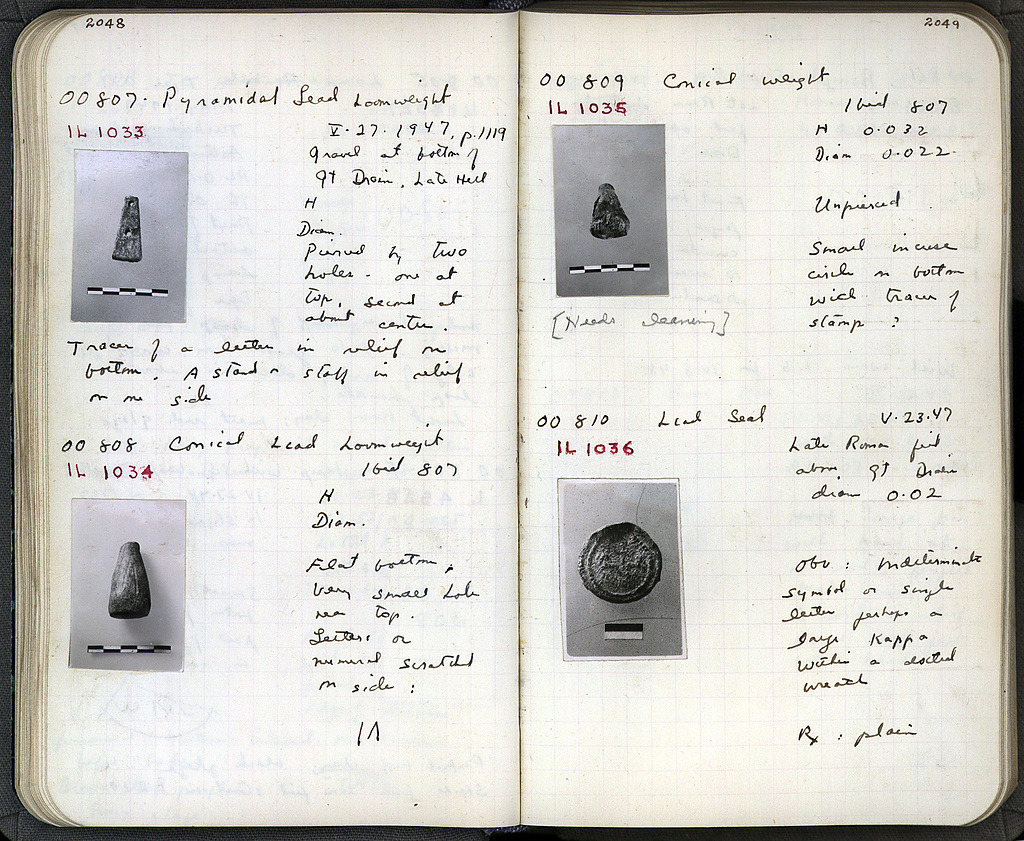 2048
OO 807. Pyramidal Lead Loomweight
IL 1033
V·27·1947, p.1119
Gravel at bottom of
Gt Drain, Late Hell
H
Diam.
Pierced by two
holes - one at
top, second at
about center.
Traces of a letter in relief on
bottom. A stand or staff in relief
on one side
OO 808 Conical Lead Loomweight
IL 1034
Ibid 807
H
Diam.
Flat bottom,
very small hole
near top.
Letters or
numeral scratched
on side:
2049
OO 809 Conical weight
IL 1035
Ibid 807
H 0.032
Diam 0.022
Unpierced
Small incuse
circle on bottom
with traces of
stamp?
[Needs cleaning]
OO 810 Lead Seal V·23·47
IL 1036
Late Roman fill
above Gt Drain
diam 0.02
Obv: Indeterminate
symbol or single
letter perhaps a
large Kappa
within a dotted
wreath
Rx: plain